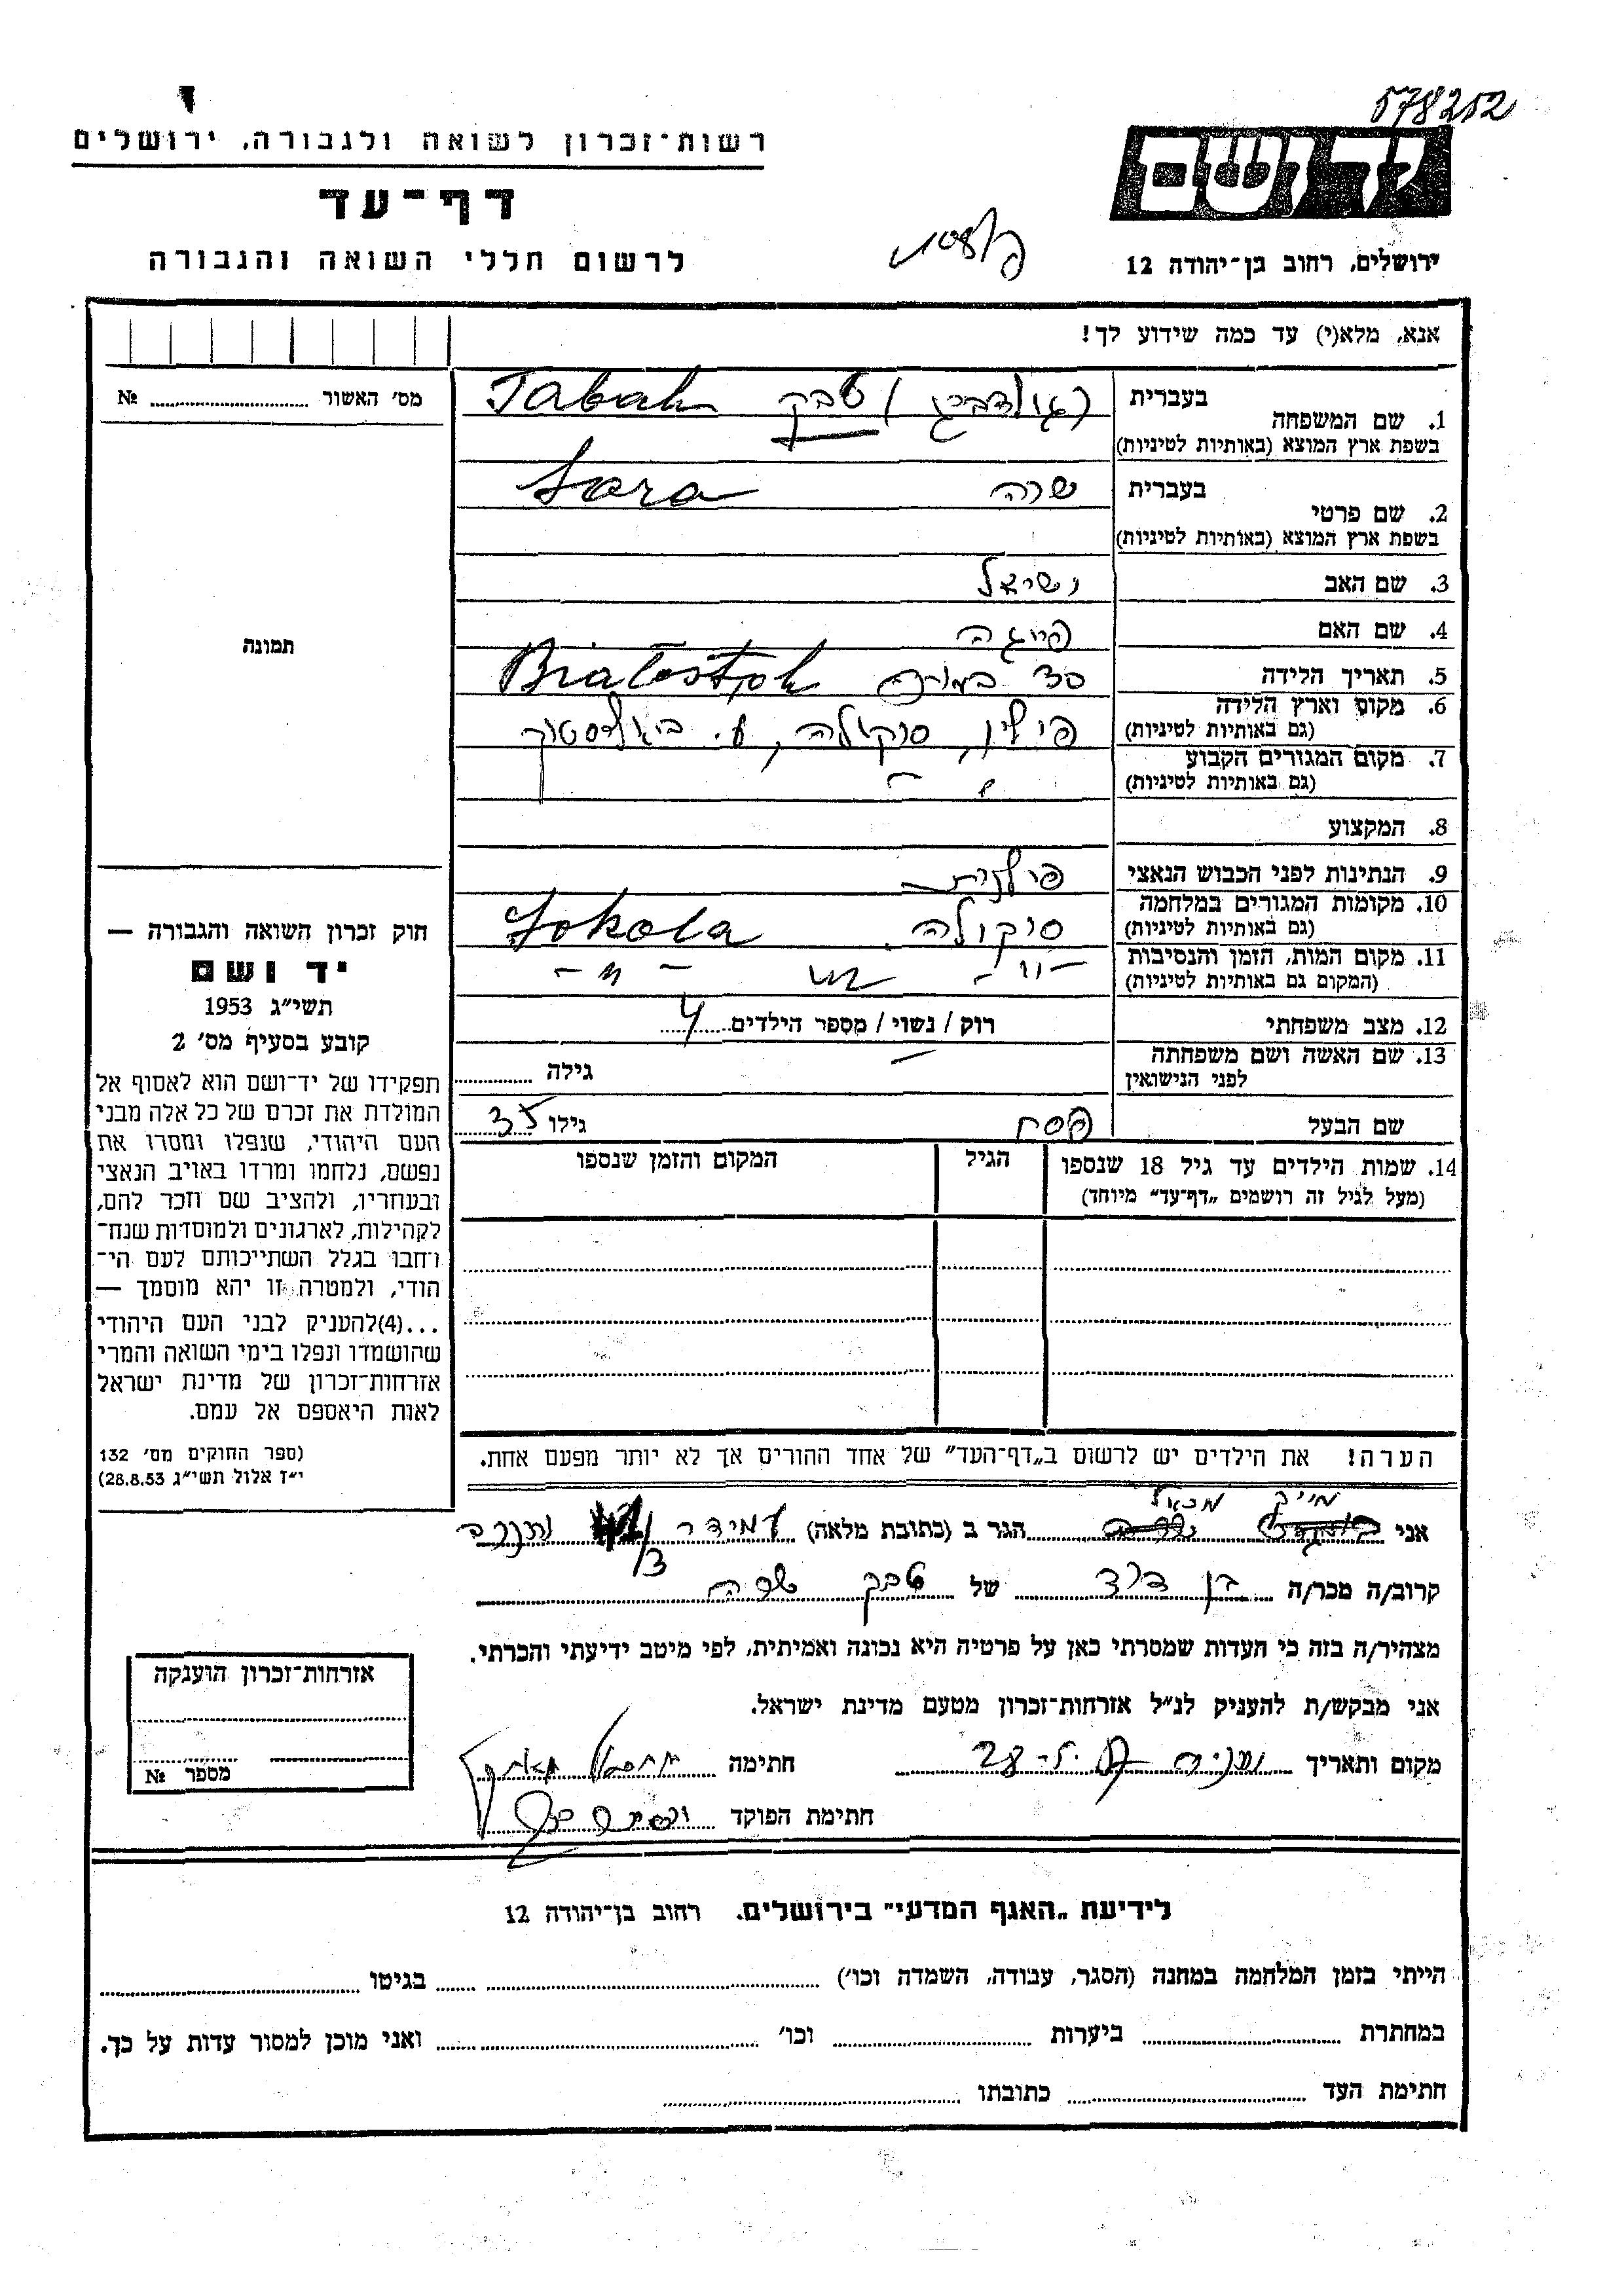 578252
רשות־זכרון לשואה ולגבורה, ירושלים
דף־עד
לרשום חללי השואה והגבורה
יד ושם
ירושלים, רחוב בן־יהודה 12
אנא, מלא(י) עד כמה שידוע לך!
מס׳ האשור ........ №
1. שם המשפחה
בעברית
(גולדברג) טבק Tabak
בשפת ארץ המוצא (באותיות לטיניות)
2. שם פרטי
בעברית
שרה Sara
בשפת ארץ המוצא (באותיות לטיניות)
3. שם האב ישראל
4. שם האם פייגה
5. תאריך הלידה 30 במותה Białostok
6. מקום וארץ הלידה
(גם באותיות לטיניות)
פולין, סוקולה, ע. ביאליסטוק
7. מקום המגורים הקבוע
(גם באותיות לטיניות)
8. המקצוע
9. הנתינות לפני הכבוש הנאצי פולנית
10. מקומות המגורים במלחמה
(גם באותיות לטיניות)
סוקולה Sokola
11. מקום המות, הזמן והנסיבות
(המקום גם באותיות לטיניות)
־ ״ ־ ־ ״ ־
12. מצב משפחתי רוק / נשוי / מספר הילדים 4
13. שם האשה ושם משפחתה
לפני הנישואין
גילה
שם הבעל פסח גילו 35
14. שמות הילדים עד גיל 18 שנספו
(מעל לגיל זה רושמים „דף־עד״ מיוחד)
הגיל
המקום והזמן שנספו
הערה! את הילדים יש לרשום ב„דף־העד״ של אחד ההורים אך לא יותר מפעם אחת.
תמונה
חוק זכרון השואה והגבורה —
יד ושם
תשי״ג 1953
קובע בסעיף מס׳ 2
תפקידו של יד־ושם הוא לאסוף אל
המולדת את זכרם של כל אלה מבני
העם היהודי, שנפלו ומסרו את
נפשם, נלחמו ומרדו באויב הנאצי
ובעוזריו, ולהציב שם וזכר להם,
לקהילות, לארגונים ולמוסדות שנח־
רחבו בגלל השתייכותם לעם הי־
הודי, ולמטרה זו יהא מוסמך —
...(4)להעניק לבני העם היהודי
שהושמדו ונפלו בימי השואה והמרי
אזרחות־זכרון של מדינת ישראל
לאות היאספם אל עמם.
(ספר החוקים מס׳ 132
י״ז אלול תשי״ג 28.8.53)
אני מכאל הגר ב (כתובת מלאה) עמידר 3/
קרוב/ה מכר/ה בן דוד של טבק שרה
מצהיר/ה בזה כי העדות שמסרתי כאן על פרטיה היא נכונה ואמיתית, לפי מיטב ידיעתי והכרתי.
אני מבקש/ת להעניק לנ״ל אזרחות־זכרון מטעם מדינת ישראל.
מקום ותאריך
חתימה
חתימת הפוקד
אזרחות־זכרון הוענקה
מספר №
לידיעת „האגף המדעי״ בירושלים. רחוב בן־יהודה 12
הייתי בזמן המלחמה במחנה (הסגר, עבודה, השמדה וכו׳) ........ בגיטו ........
במחתרת ........ ביערות ........ וכו׳ ........ ואני מוכן למסור עדות על כך.
חתימת העד ........ כתובתו ........